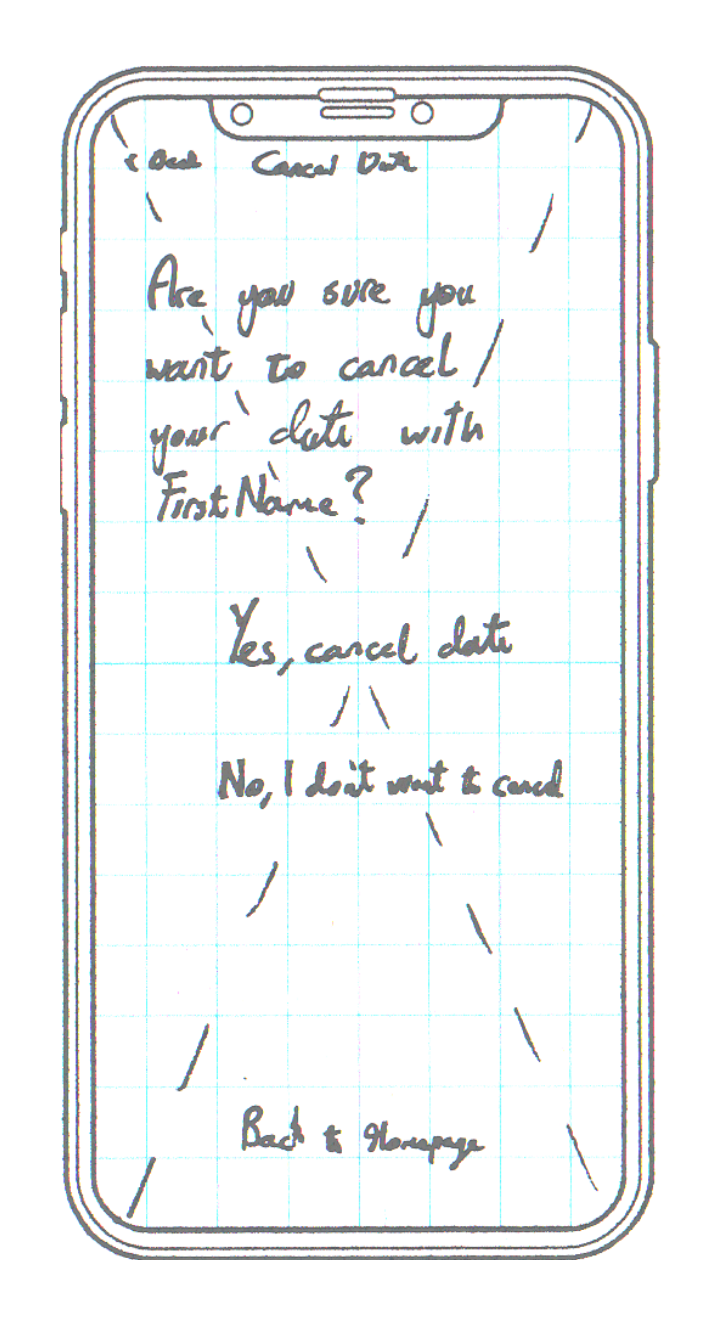 < Back Cancel Date
Are you sure you
want to cancel
your date with
First Name?
Yes, cancel date
No, I don't want to cancel
Back to Homepage